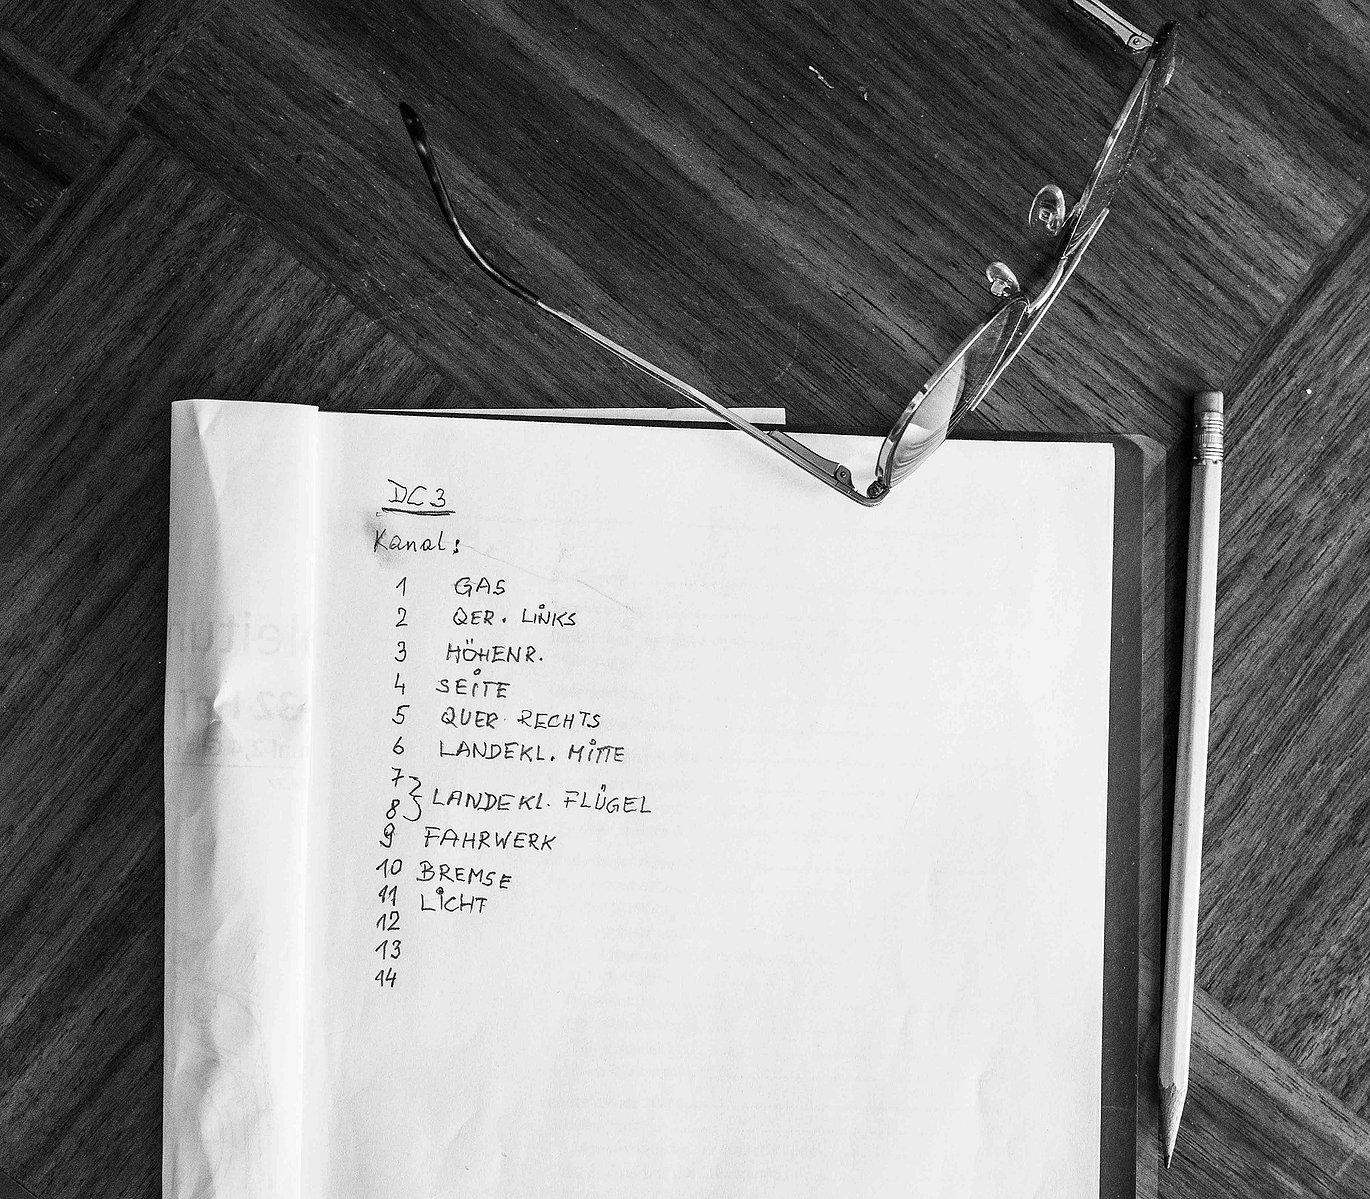 DC3
Kanal:
1 GAS
2 QER. LINKS
3 HÖHENR.
4 SEITE
5 QUER RECHTS
6 LANDEKL. MITTE
7
8 } LANDEKL. FLÜGEL
9 FAHRWERK
10 BREMSE
11 LICHT
12
13
14